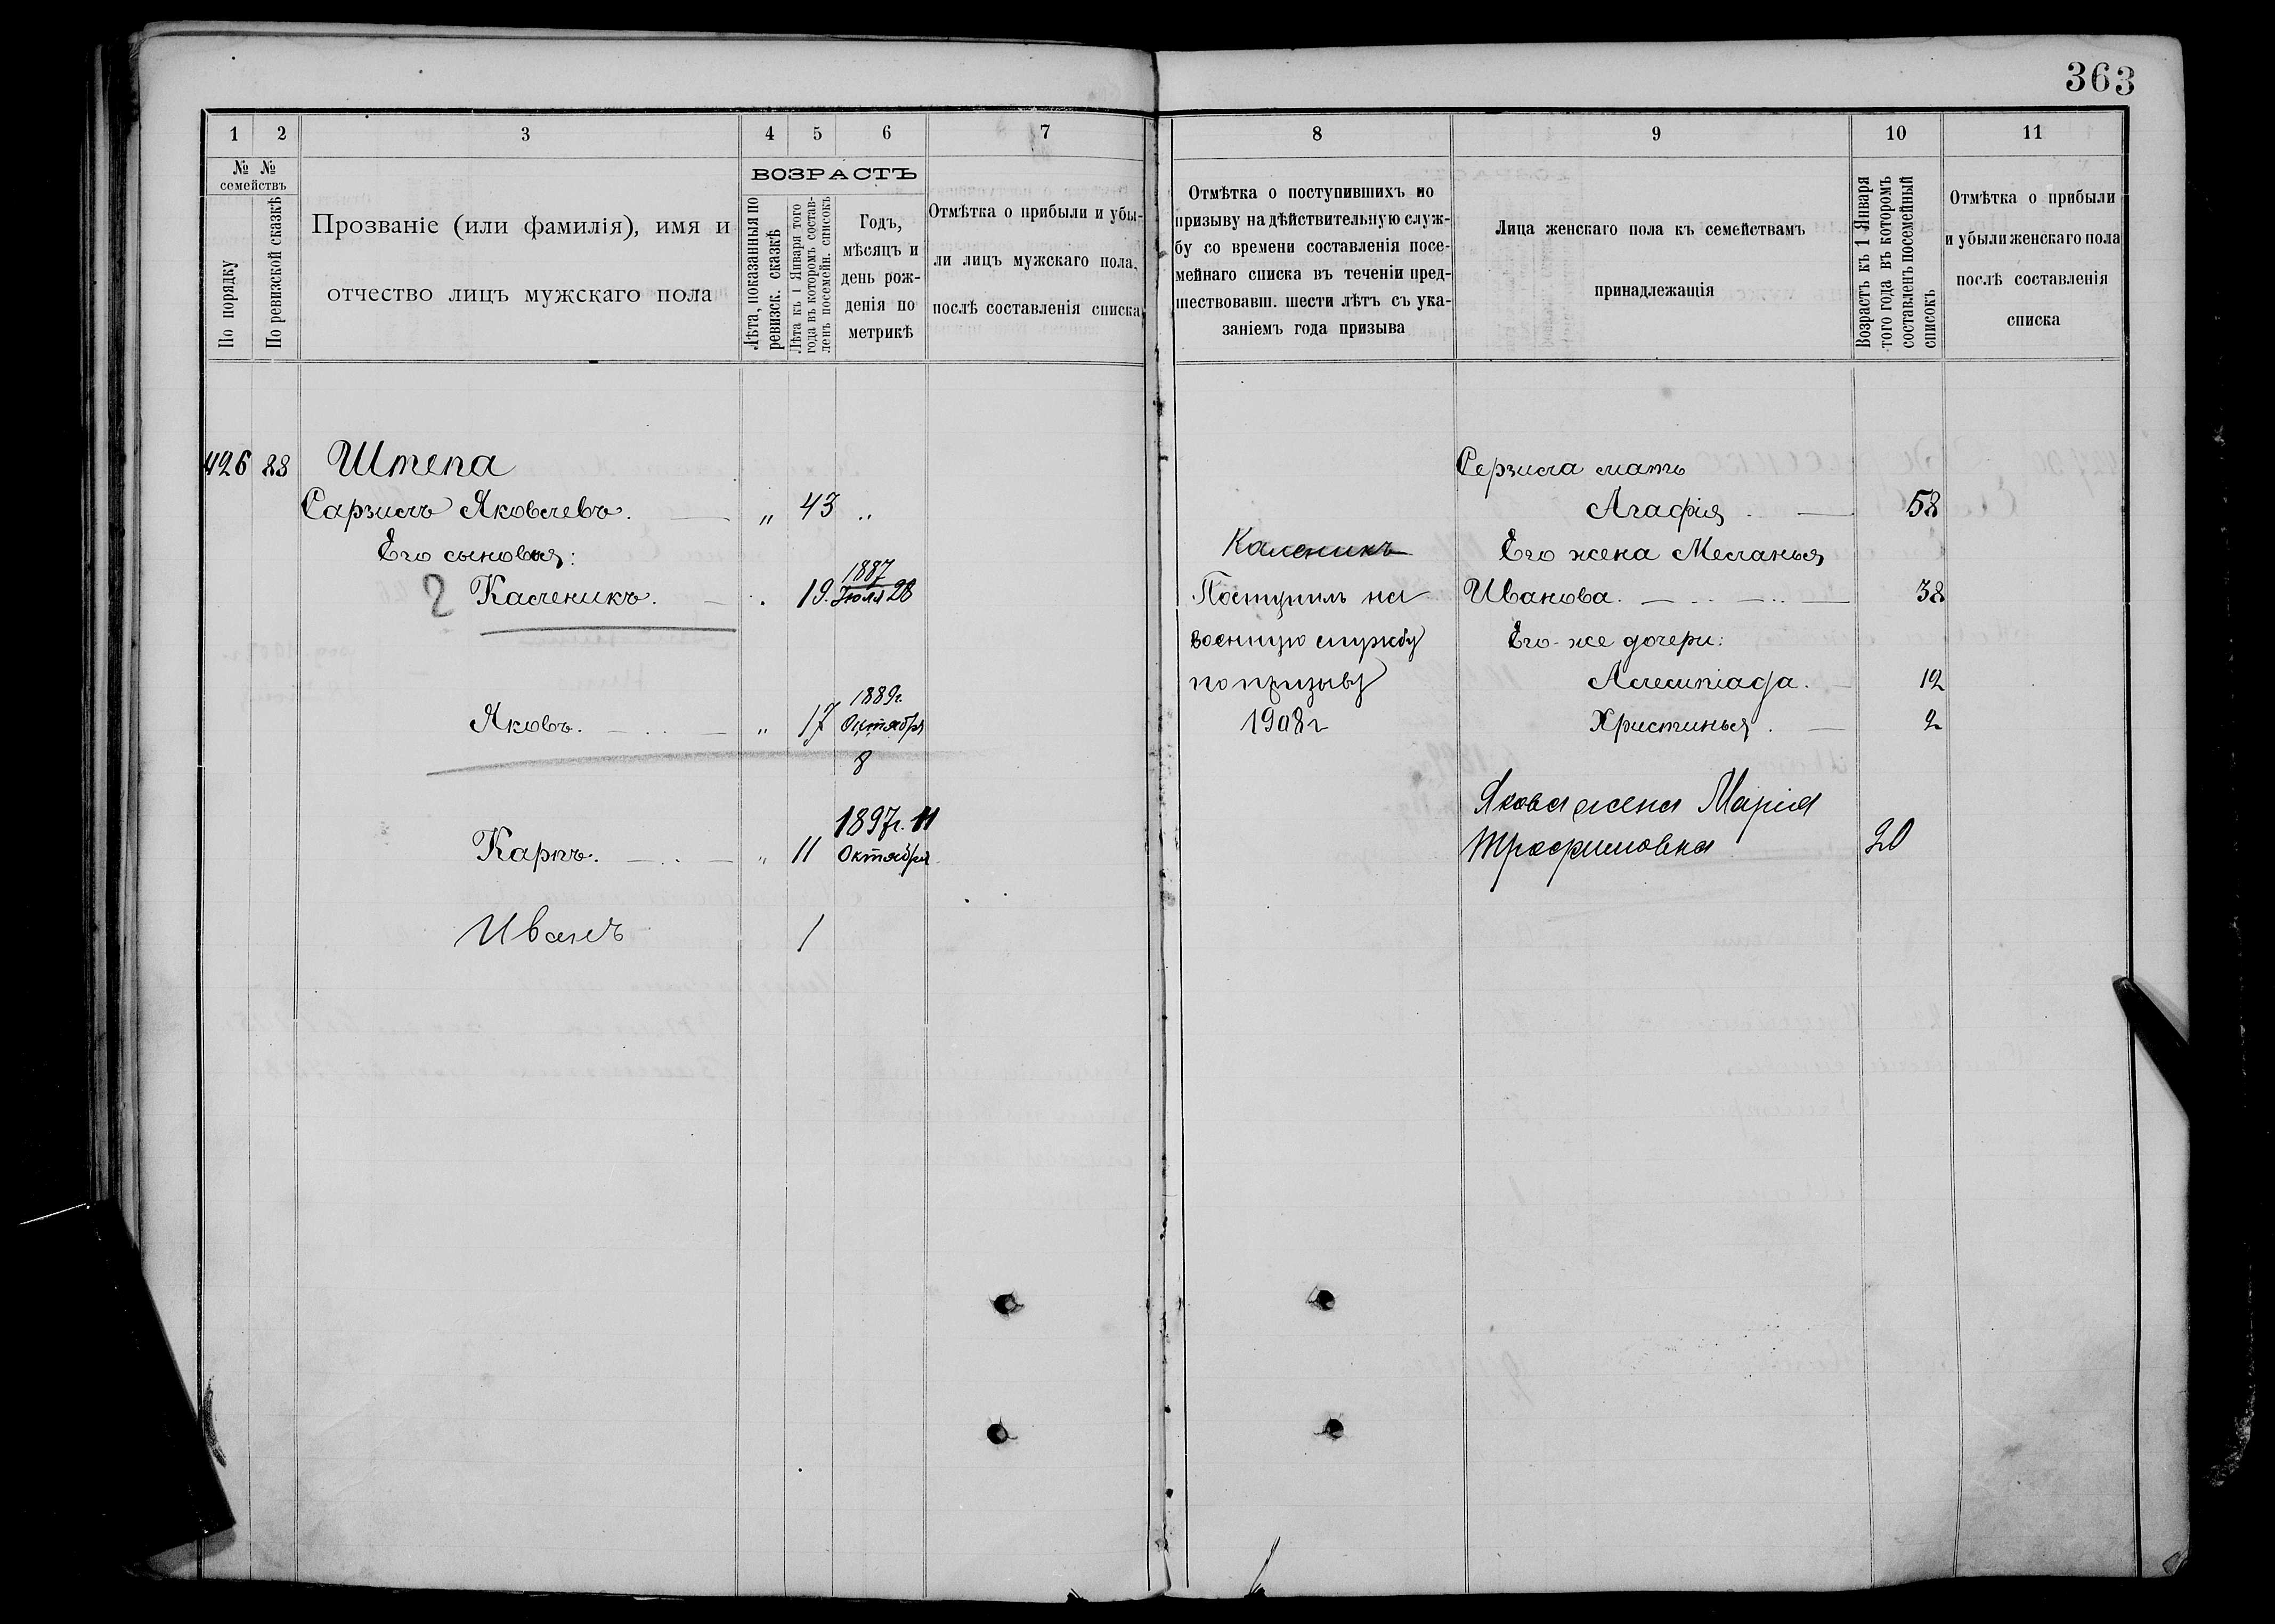 363
1 2 3 4 5 6 7
№ № семействъ
По порядку
По ревизской сказкѣ
Прозваніе (или фамилія), имя и
отчество лицъ мужскаго пола
ВОЗРАСТЪ
Лѣта, показанныя по
ревизск. сказкѣ
Лѣта къ 1 Января того
года въ которомъ состав-
ленъ посемейн. списокъ
Годъ,
мѣсяцъ и
день рож-
денія по
метрикѣ
Отмѣтка о прибыли и убы-
ли лицъ мужскаго пола,
послѣ составленія списка
426 88 Штепа
Сарзилъ Яковлевъ. „ 43 „
Его сыновья:
2 Каленикъ. 19. 1887 Іюля 28
Яковъ. „ 17 1889г. Октября 8
Карпъ. „ 11 1897г. 11 Октября
Иванъ 1
8 9 10 11
Отмѣтка о поступившихъ по
призыву на дѣйствительную служ-
бу со времени составленія посе-
мейнаго списка въ теченіи пред-
шествовавш. шести лѣтъ съ ука-
заніемъ года призыва
Лица женскаго пола къ семействамъ
принадлежащія
Возрастъ къ 1 Января
того года въ которомъ
составленъ посемейный
списокъ
Отмѣтка о прибыли
и убыли женскаго пола
послѣ составленія
списка
Каленикъ
Поступилъ на
военную службу
по призыву
1908г
Серзила мать
Агафія 58
Его жена Меланья
Иванова. 38
Его-же дочери:
12
Христинья. 2
Якова жена Марія
Трофимовна 20